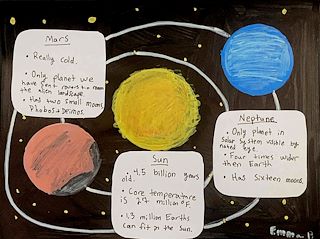 Mars
• Really cold.
• Only planet we
have sent rovers to roam
the alien landscape.
• Has two small moons,
Phobos + Deimos.
Sun
• 4.5 billion years
old.
• Core temperature
is 27 million °F.
• 1.3 million Earths
can fit in the sun.
Neptune
• Only planet in
solar system visible by
naked eye.
• Four times wider
then Earth
• Has sixteen moons.
Emma